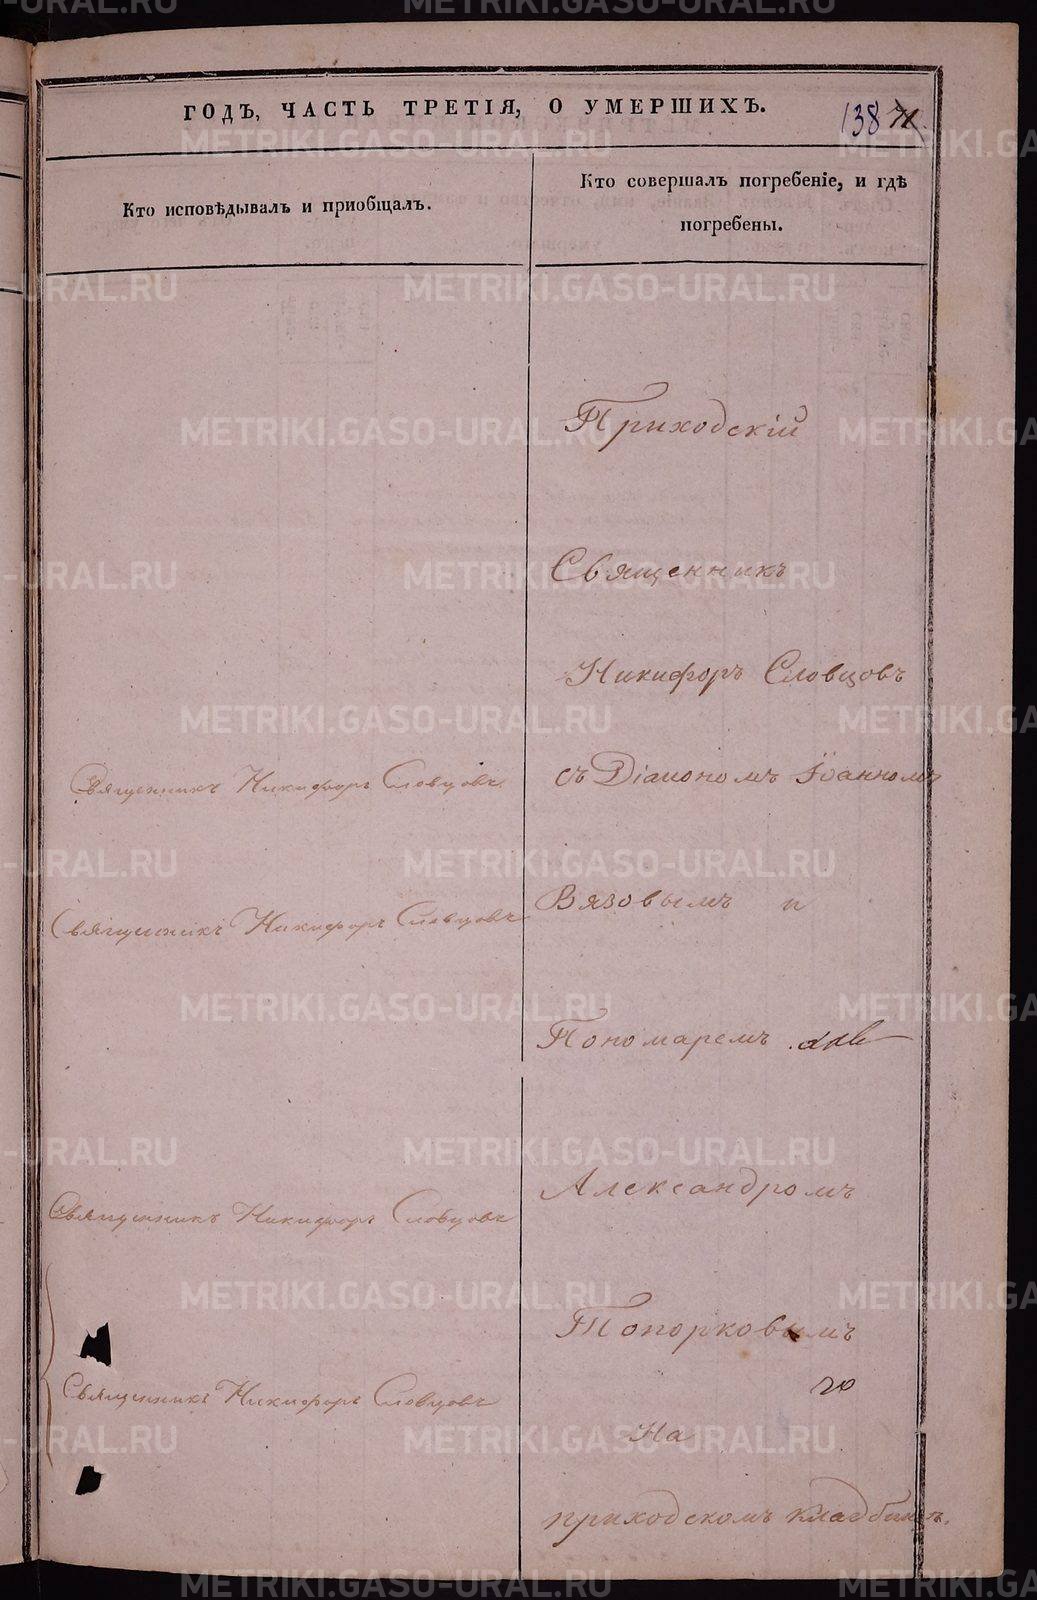 ГОДЪ, ЧАСТЬ ТРЕТІЯ, О УМЕРШИХЪ.
138
Кто исповѣдывалъ и пріобщалъ.
Кто совершалъ погребеніе, и гдѣ
погребены.
Приходскій
Священникъ
Никифоръ Словцовъ
Священникъ Никифоръ Словцовъ
съ Діакономъ Іоанномъ
Священникъ Никифоръ Словцовъ
Вязовымъ и
Пономаремъ
Священникъ Никифоръ Словцовъ
Александромъ
Топорковымъ
Священникъ Никифоръ Словцовъ
На
приходскомъ кладбищѣ.
METRIKI.GASO-URAL.RU